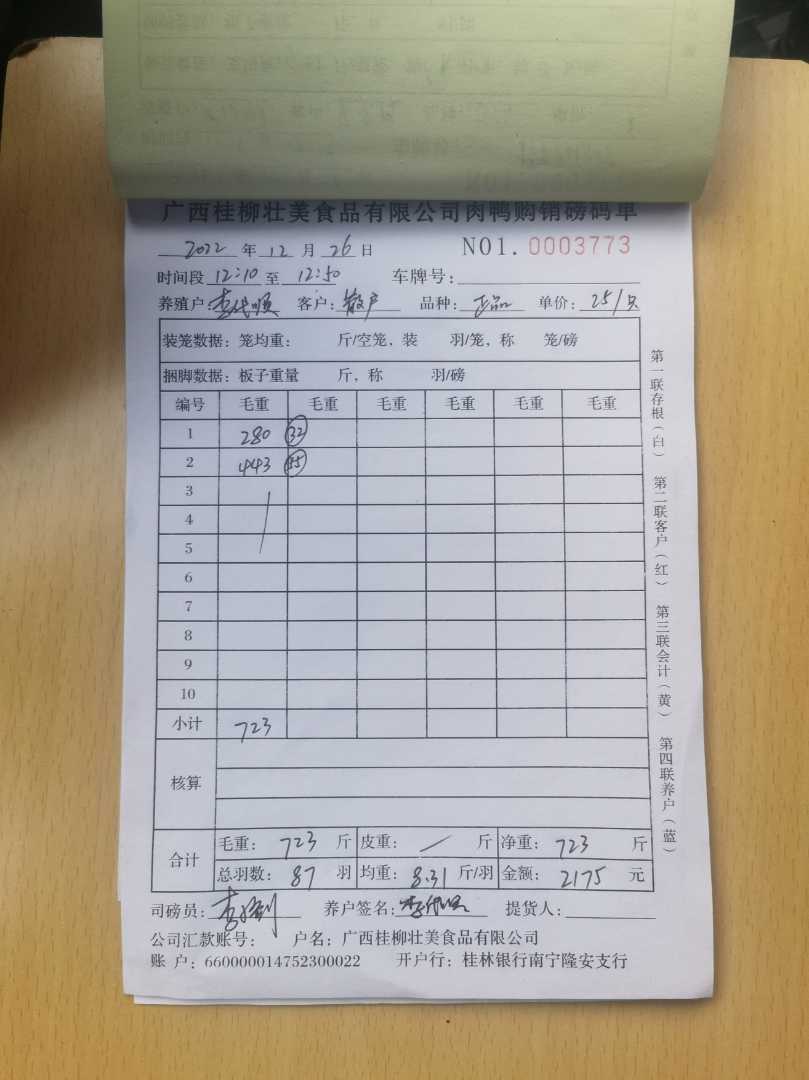 广西桂柳壮美食品有限公司肉鸭购销磅码单
2022 年 12 月 26 日 NO1. 0003773
时间段 12:10 至 12:50 车牌号:
养殖户: 李代顺 客户: 散户 品种: 正品 单价: 25/只
装笼数据: 笼均重: 斤/空笼, 装 羽/笼, 称 笼/磅
捆脚数据: 板子重量 斤, 称 羽/磅
编号 毛重 毛重 毛重 毛重 毛重 毛重
1 280 32
2 443 55
3
4
5
6
7
8
9
10
小计 723
核算
合计 毛重: 723 斤 皮重: / 斤 净重: 723 斤
总羽数: 87 羽 均重: 8.31 斤/羽 金额: 2175 元
司磅员: 养户签名: 提货人:
公司汇款账号: 户名: 广西桂柳壮美食品有限公司
账 户: 660000014752300022 开户行: 桂林银行南宁隆安支行
第一联存根(白) 第二联客户(红) 第三联会计(黄) 第四联养户(蓝)